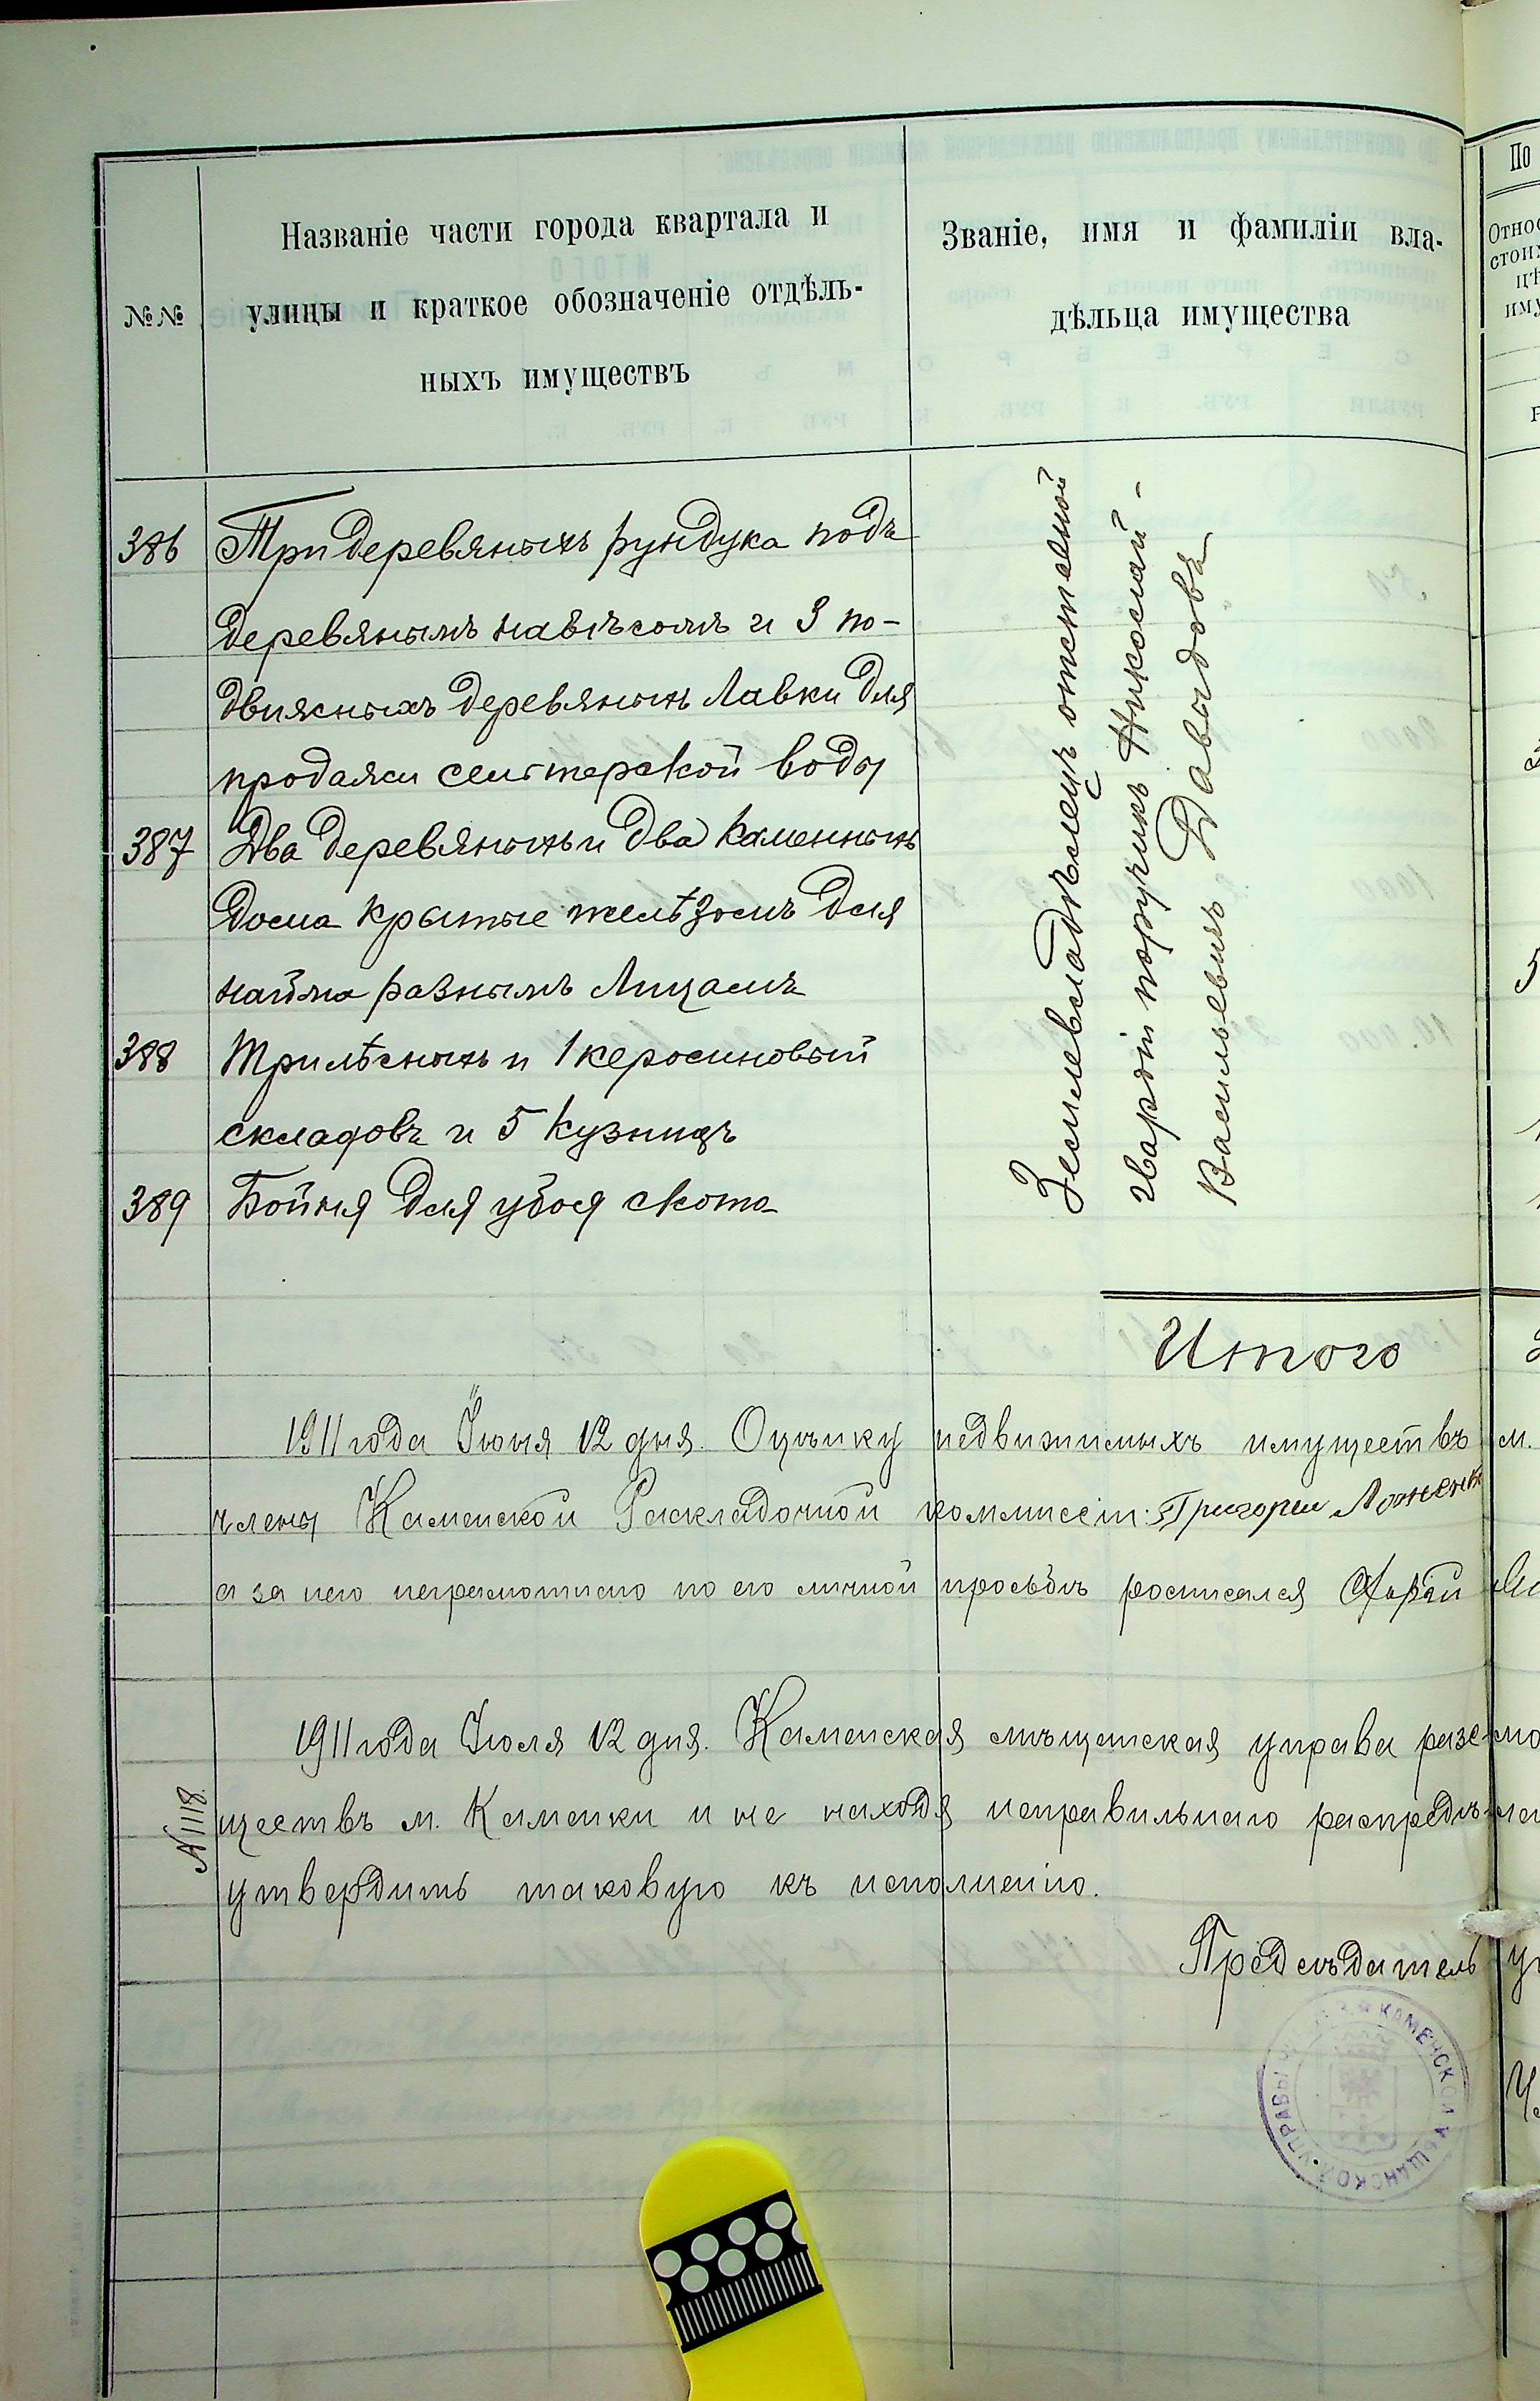 №№
Названіе части города квартала и
улицы и краткое обозначеніе отдѣль-
ныхъ имуществъ
Званіе, имя и фамиліи вла-
дѣльца имущества
По
386 Три деревяныхъ рундука подъ
деревянымъ навѣсомъ и 3 по-
движныхъ деревяныхъ лавки для
продажи сельтерской воды
387 Два деревяныхъ и два каменныхъ
дома крытые желѣзомъ для
найма разнымъ лицамъ
388 Три лѣсныхъ и 1 керосиновый
складовъ и 5 кузницъ
389 Бойня для убоя скота
Землевладѣлецъ отставной
гвардіи поручикъ Николай
Васильевичъ Давыдовъ
Итого
1911 года Іюня 12 дня. Оцѣнку недвижимыхъ имуществъ м.
члены Каменской Раскладочной коммисіи: Григорій
а за него неграмотнаго по его личной просьбѣ росписался
1911 года Іюля 12 дня. Каменская мѣщанская управа разсмо
ществъ м. Каменки и не находя неправильнаго распредѣле
утвердить таковую къ исполненію.
№1118.
Предсѣдатель
КАМЕНСКОЙ МѢЩАНСКОЙ УПРАВЫ